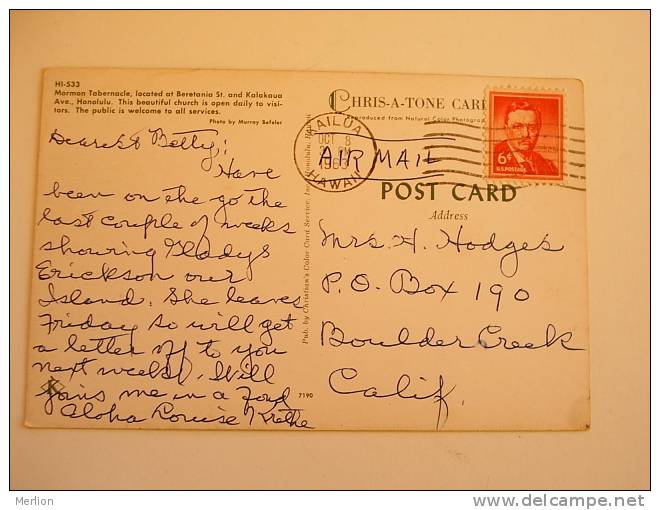 HI-533
Mormon Tabernacle, located at Beretania St. and Kalakaua
Ave., Honolulu. This beautiful church is open daily to visi-
tors. The public is welcome to all services.
Photo by Murray Befeler
Dearest Betty;
Have
been on the go the
last couple of weeks
showing Gladys
Erickson our
Island. She leaves
Friday so will get
a letter off to you
next week. Will
joins me in a fond
Aloha Louise
7190
Pub. by Christian's Color Card Service, Honolulu,
CHRIS-A-TONE CARD
Reproduced from Natural Color Photograp
KAILUA
OCT 8
PM
HAWAII
AIR MAIL
6¢
U.S. POSTAGE
POST CARD
Address
Mrs. H. Hodges
P.O. Box 190
Boulder Creek
Calif.
Merlion
www.delcampe.net